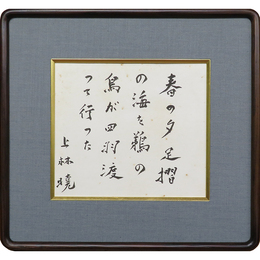 春の夕足摺
の海を鵜の
鳥が四羽渡
つて行つた
上林暁